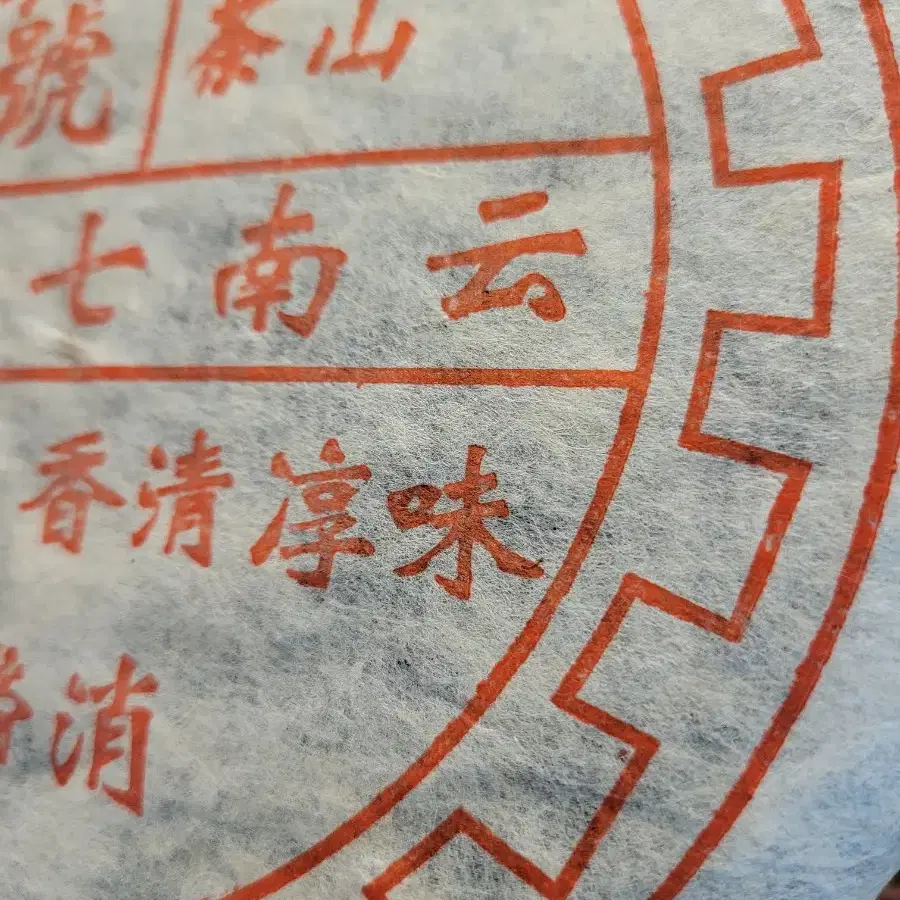 山茶
號
云南七
味淳清香
消